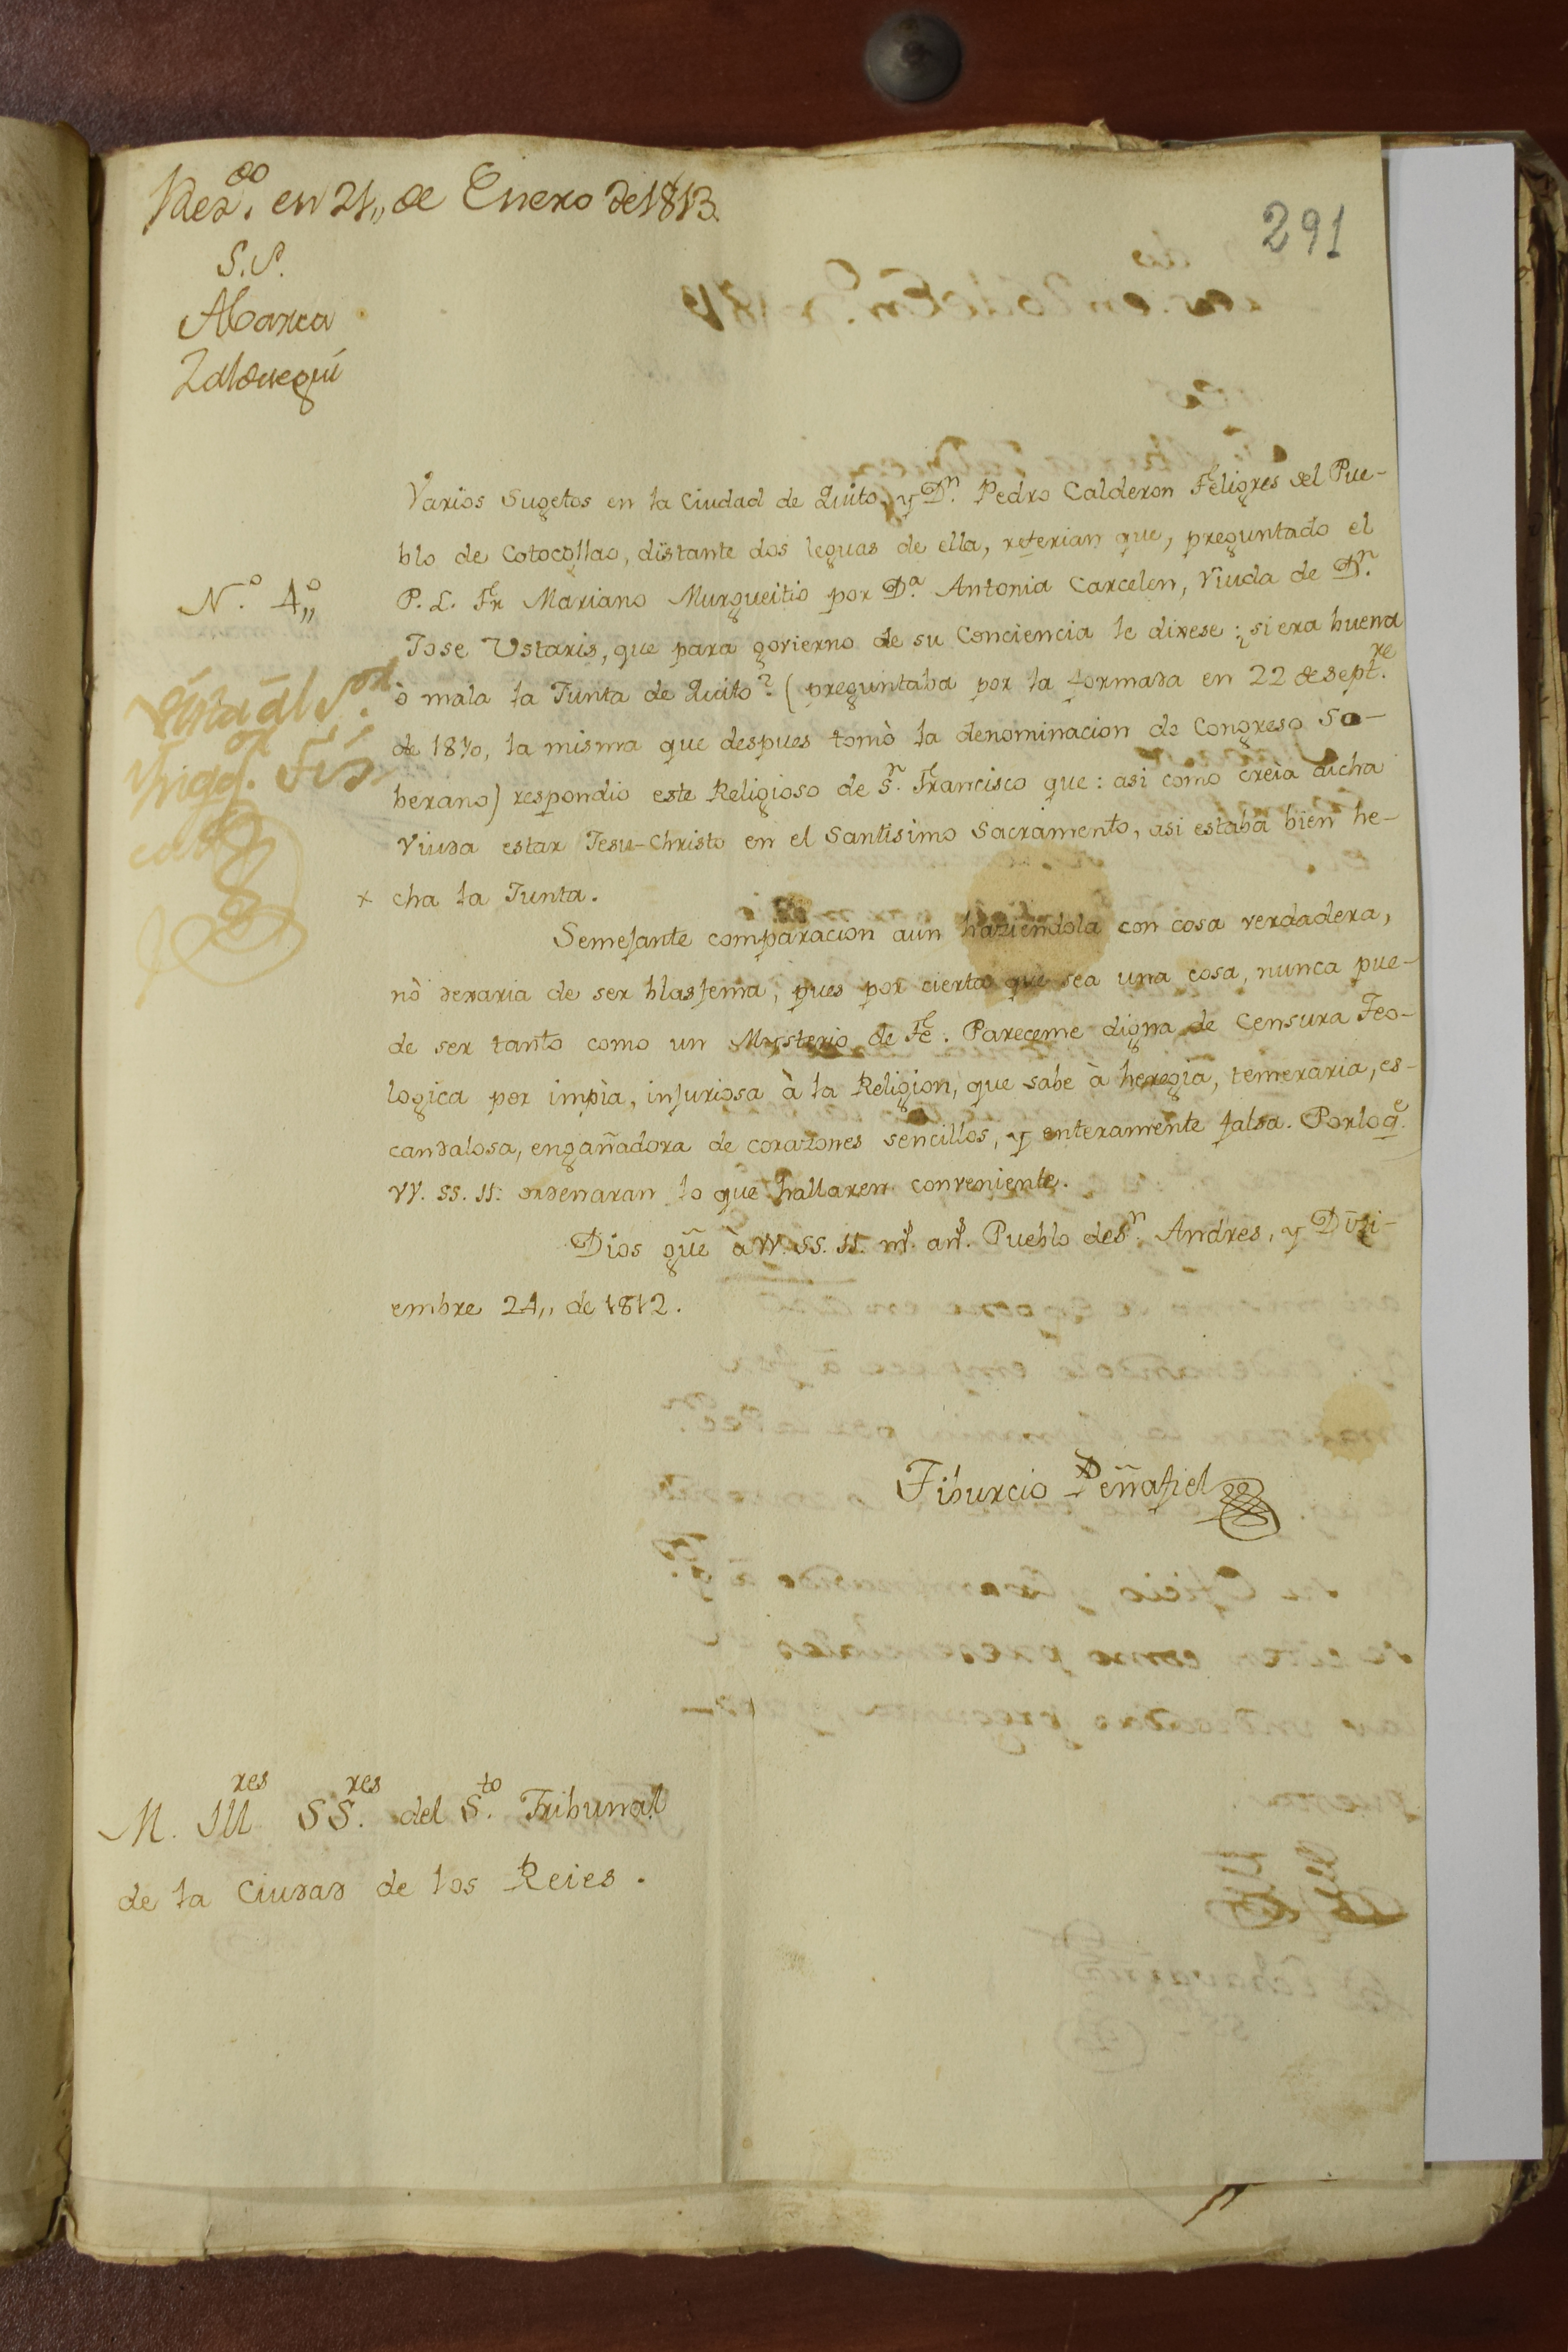 Rez.do en 21,, de Enero de 1813.
291
S.S.
Abarca
Zalduegui
Varios Sugetos en la Ciudad de Quito, y Dn. Pedro Calderon Feligres del Pue-
blo de Cotocollao, distante dos leguas de ella, referian que, preguntado el
N.o 4,,
P. L. Fr Mariano Murgueitio por Da. Antonia Carcelen, Viuda de Dn.
Jose Ustaris, que para govierno de su Conciencia le dixese: ¿si era buena
ò mala la Junta de Quito? (preguntaba por la formada en 22 de Septre.
de 1810, la misma que despues tomò la denominacion de Congreso So-
berano) respondio este Religioso de Sn. Francisco que: asi como creìa dicha
Viuda estar Jesu-Christo en el Santisimo Sacramento, asi estaba bien he-
x cha la Junta.
Vista al S.or
Inqq.or Fis
cal
Semejante comparacion aun haziendola con cosa verdadera,
nò dexaria de ser blasfema, pues por cierta que sea una cosa, nunca pue-
de ser tanto como un Mysterio de Fe. Pareceme digna de Censura Teo-
logica por impìa, injuriosa à la Religion, que sabe à heregìa, temeraria, es-
candalosa, engañadora de corazones sencillos, y enteramente falsa. Por lo qe.
VV. SS. II. ordenaran lo que hallaren conveniente.
Dios gũe à VV. SS. II. ms. ans. Pueblo de Sn. Andres, y Dizi-
embre 24,, de 1812.
Tiburcio Peñafiel
M. Ill.res SS.res del S.to Tribunal
de la Ciudad de los Reies.